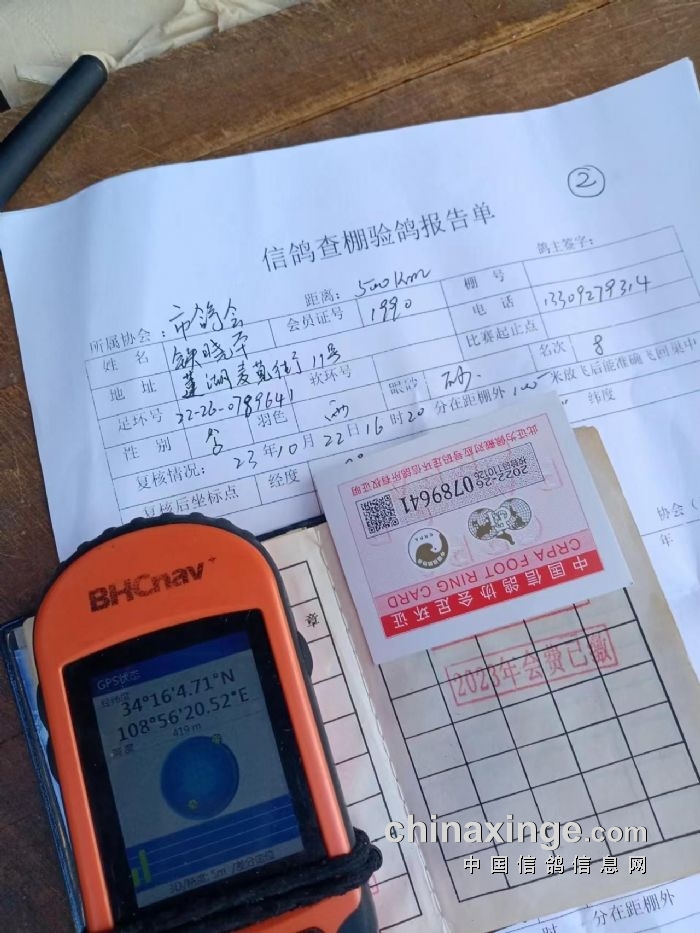 ②
信鸽查棚验鸽报告单
鸽主签字:
所属协会: 市鸽会 距离: 500Km 棚号
姓名 会员证号 1990 电话 13309279314
地址 莲湖麦苋街 19号 比赛起止点
足环号 22-26-0789641 软环号 名次 8
性别 羽色 眼砂 砂
复核情况: 23年10月22日16时20分在距棚外100米放飞后能准确飞回巢中
复核后坐标点 经度 纬度
协会(
年
2022-26 0789641
此证为佩戴对应号码足环信鸽所有权证明
CRPA
CRPA FOOT RING CARD
中国信鸽协会足环证
章
2023年会费已缴
BHCnav
GPS状态
经纬度
34°16'4.71"N
108°56'20.52"E
419 m
高度
chinaxinge.com
中国信鸽信息网
时 分在距棚外